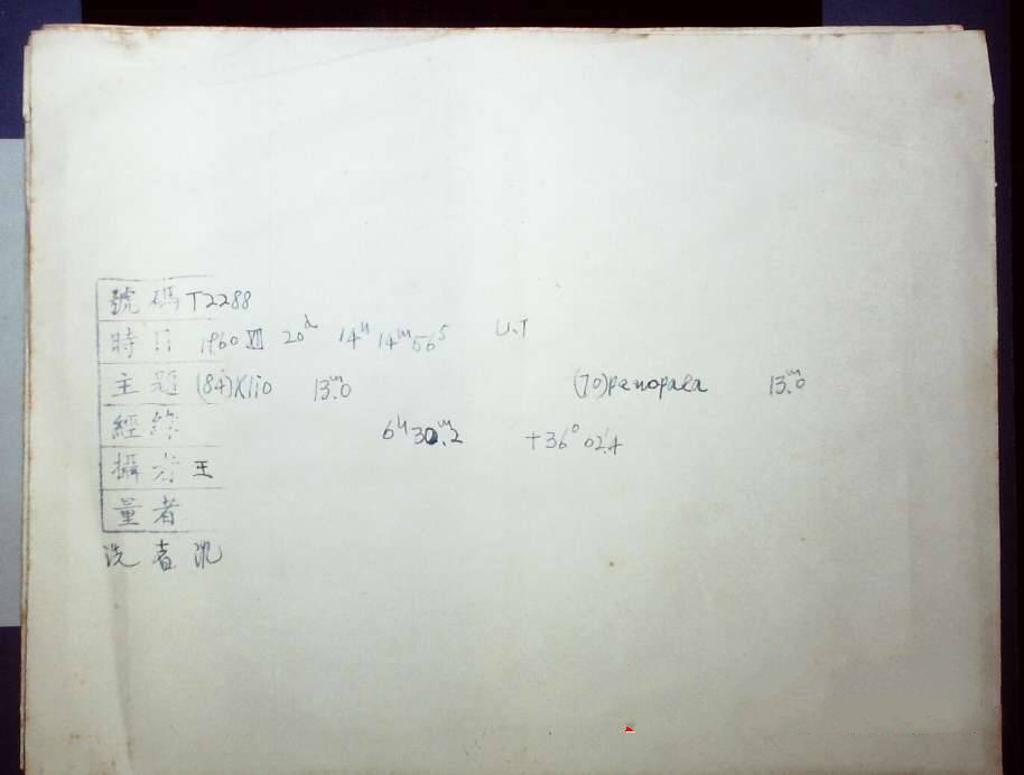 號碼 T2288
時日 1960 XII 20d 14h 14m 56s U.T
主題 (84)Klio 13m.0 (70)panopaea 13m.0
經緯 6h 30m.2 +36° 02'.4
攝者 王
量者
洗者 沈